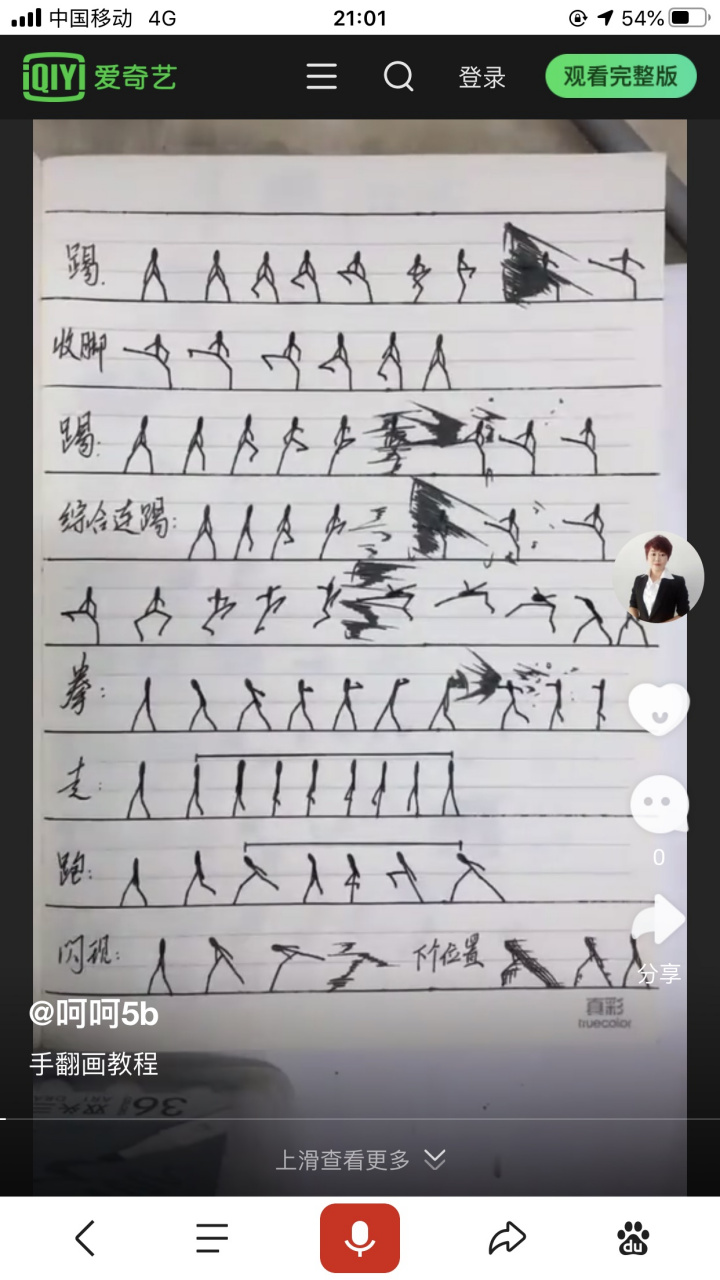 中国移动 4G 21:01 54%
iQIYI 爱奇艺 登录 观看完整版
踢.
收脚
踢:
综合连踢:
拳:
走:
跑:
闪现: 下个位置
0
分享
真彩
truecolor
@呵呵5b
手翻画教程
36
上滑查看更多
du